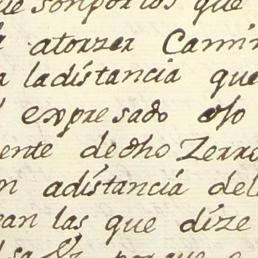 ue son por los que
a atorzer Camin
a ladistancia que
l expresado ojo
ente dedho Zerro
n adistancia del
ean las que dize